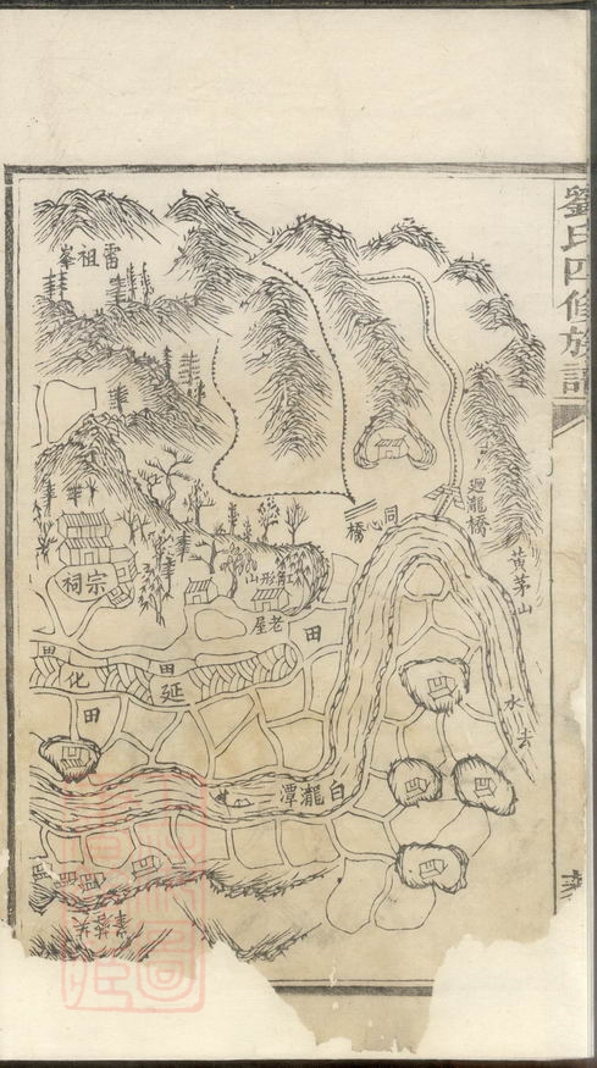 劉氏四修族譜
雷祖峯
迴瀧橋
同心橋
黃茅山
宗祠
山形
老屋
田
田
田
延化
田
水去
白瀧潭